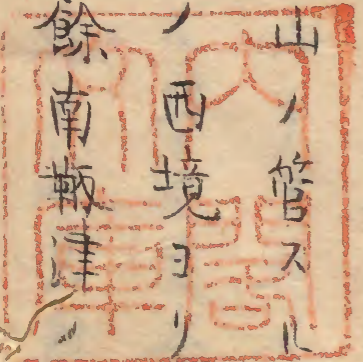 山ノ管スル
ノ西境ヨリ
餘南鞆津ノ